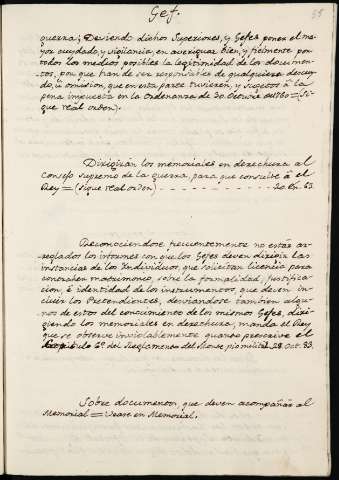 Gef.
guerra; Deviendo dichos Superiores, y Gefes poner el ma-
yor cuydado, y vigilancia, en averiguar bien, y fielmente por
todos los medios posibles la legitimidad de los documen-
tos, por que han de ser responsables de qualquiera descuy-
do, ù omision, que en esta parte tuvieren, y sugetos à la
pena impuesta en la Ordenanza de 30 Octvre de 1760 = (Si-
gue real orden).
Dirigirán los memoriales en derechura al
Consejo supremo de la guerra, para que consulte à el
Rey = (sigue real orden)
Reconociendose frecuentemente no estàr ar-
reglados los informes con que los Gefes deven dirigir las
instancias de los Yndividuos, que solicitan licencia para
contraher matrimonio, sobre la formalidad, justifica-
cion, è identidad de los instrumentos, que deven in-
cluir los Pretendientes, desviandose tambien algu-
nos de estos del conocimiento de los mismos Gefes, diri-
giendo los memoriales en derechura, manda el Rey
que se observe inviolablemente quanto prescrive el
Capitulo del Reglamento del Monte pio militar 28 Oct. 83.
Sobre documentos, que deven acompañar al
Memorial = Vease en Memorial.